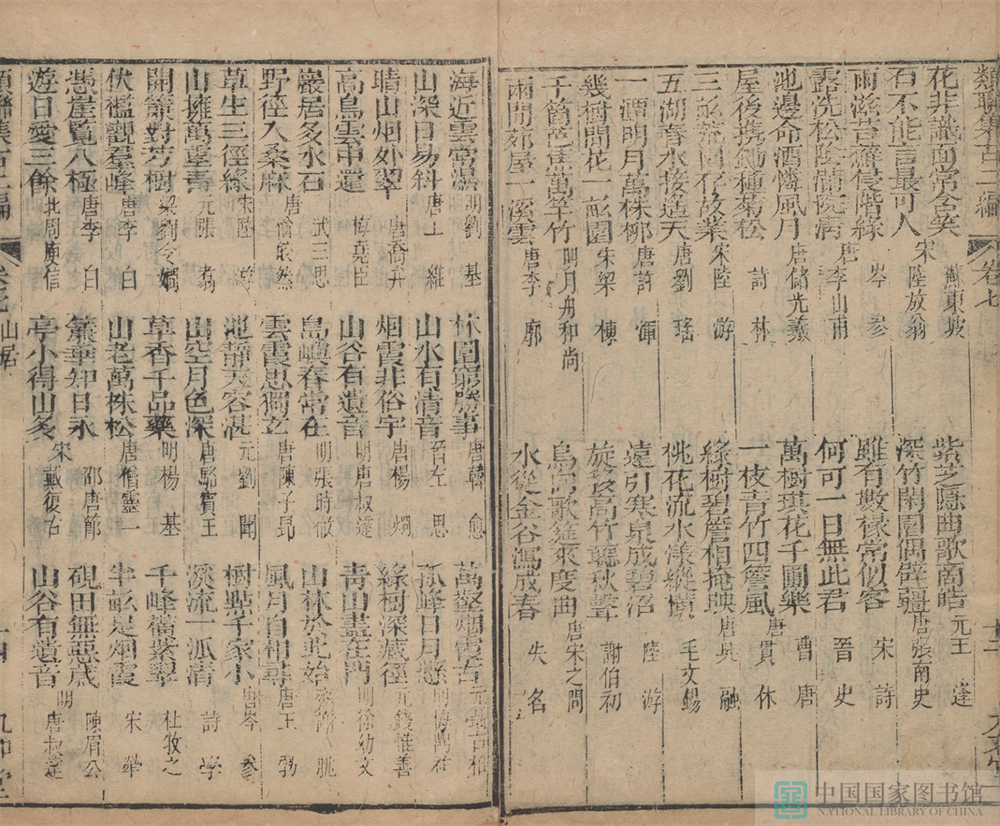 類聯集古二編 卷七
花非識面常含笑 蘇東坡 紫芝隱曲歌商皓 元王逢
石不能言最可人 宋陸放翁 深竹閑園偶辟疆 唐張南史
雨滋苔蘚侵階綠 岑參 雖有數椽常似客 宋詩
露洗松陰滿院清 唐李山甫 何可一日無此君 晉史
池邊命酒憐風月 唐儲光羲 萬樹琪花千圃藥 曹唐
屋後携鋤種菊松 詩林 一枝青竹四簷風 唐貫休
三畝荒園存故業 宋陸游 綠樹碧簷相掩映 唐吳融
五湖春水接遥天 唐劉瑤 桃花流水漾縱橫 毛文錫
一潭明月萬株柳 唐許渾 遠引寒泉成碧沼 陸游
幾樹閒花一畝園 宋梁棟 旋移高竹聽秋聲 謝伯初
千箇篔簹萬竿竹 明月舟和尚 鳥向歌筵來度曲 唐宋之問
兩間茆屋一溪雲 唐李郭 水從金谷瀉成春 失名
海近雲常濕 明劉基 林園窮勝事 唐韓愈 萬壑烟霞古
山深日易斜 唐王維 山水有清音 晉左思 孤峰日月懸
晴山烟外翠 唐喬舟 烟霞非俗宇 唐楊烱 綠樹深藏徑 元錢惟善
高鳥雲中還 梅堯臣 山谷有遺音 明唐叔逵 青山盡在門 明徐幼文
巖居多水石 武三思 島嶼春常在 明張時徹 山林於此始
野徑入桑麻 唐喻鳧然 雲霞思獨立 唐陳子昂 風月自相尋 唐王勃
草生三徑綠 宋陸游 池靜天容甚 元劉聞 樹點千家小 唐岑參
山擁萬罩青 元張翥 山空月色深 唐駱賓王 溪流一派清 詩學
開簾對芳樹 梁劉令嫺 草香千品藥 明楊基 千峰橫紫翠 杜牧之
伏檻觀羣峰 唐李白 山老萬株松 唐僧靈一 半畝是烟霞 宋犖
憑崖覽八極 唐李白 簾華知日永 邵唐節 硯田無惡歲 陳眉公
遊日愛三餘 北周庾信 亭小得山多 宋戴復古 山谷有遺音 明唐叔逵
類聯集古二編 卷七 山居